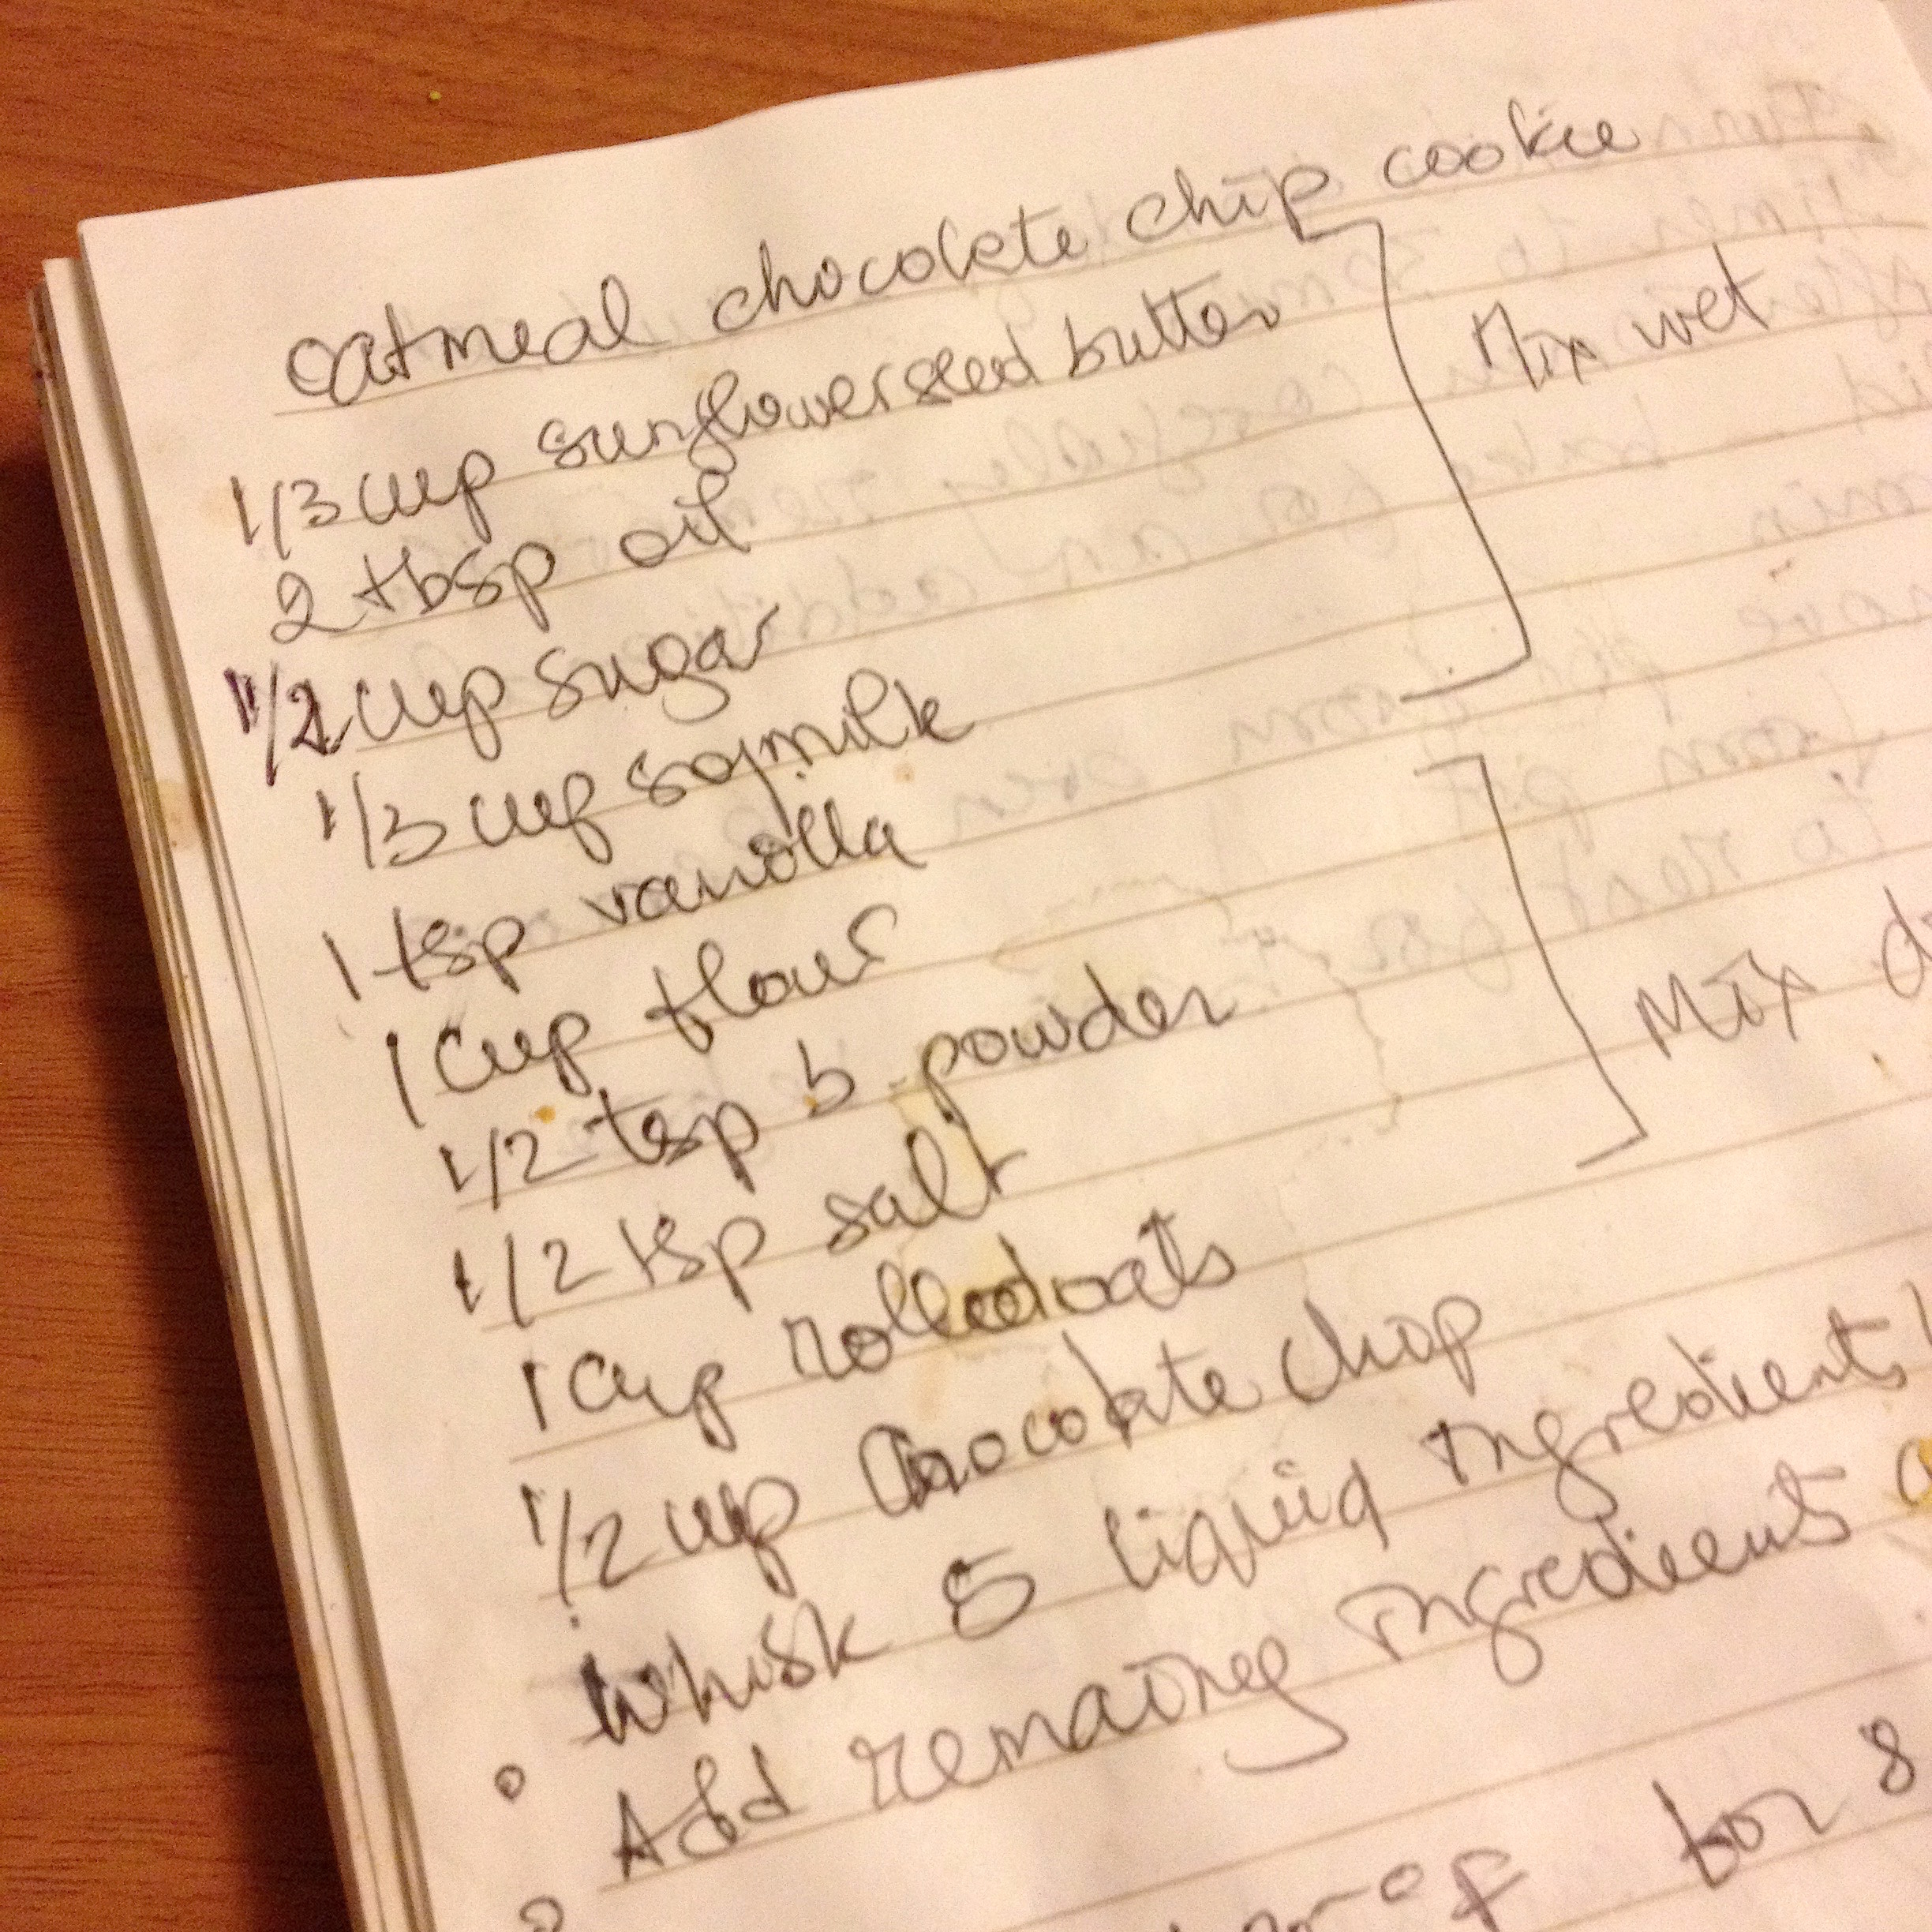 oatmeal chocolate chip cookie
1/3 cup sunflowerseed butter
Mix wet
2 tbsp oil
1/2 cup sugar
1/3 cup soymilk
1 tsp vanilla
1 cup flour
1/2 tsp b powder
Mix d
1/2 tsp salt
1 cup rolledoats
1/2 cup chocolate chop
whisk 5 liquid ingredients
Add remaining ingredients
for 8